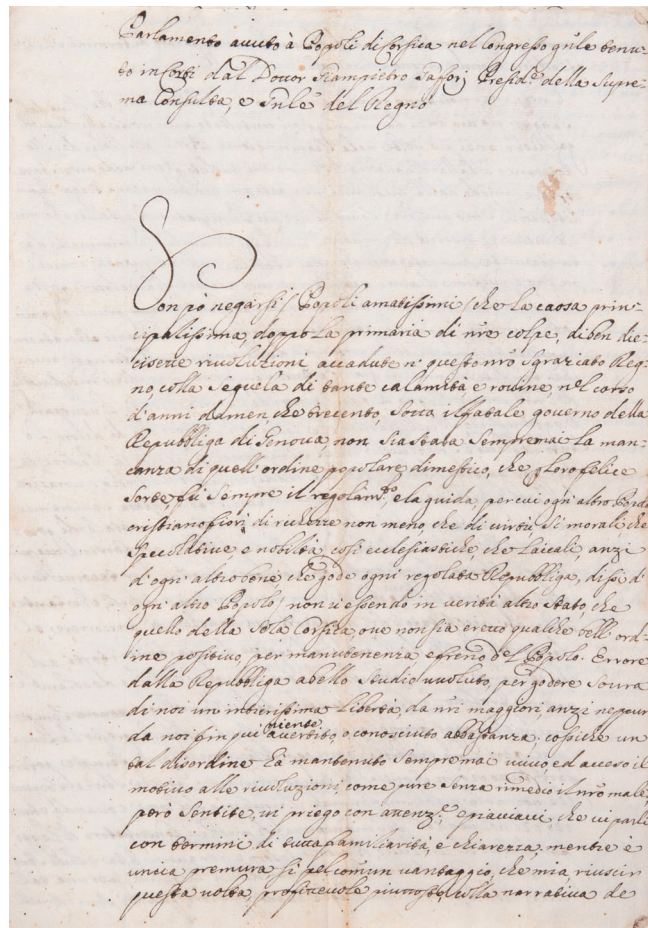 Parlamento avuto à Popoli di Corsica nel Congresso gñle tenu-
to in Corti dal Dottor Giampietro Gaffori Presid.e della Supre-
ma Consulta, e Gñle del Regno
Non pò negarsi / Popoli amatissimi / che la caosa prin-
cipalissima, doppo la primaria di nr̃e colpe, di ben die-
cisette rivoluzioni accadute n' questo nr̃o sgraziato Reg-
no, colla sequela di tante calamità e rovine, nel corso
d'anni da men che trecento, sotto il fatale governo della
Repubbliga di Genova, non sia stata sempremai la man-
canza di quell'ordine popolare dimestico, che p loro felice
sorte, fù sempre il regolam.to e la guida, per cui ogni altro Popolo
cristiano fiorì di richezze non meno, che di virtù, sì morali, che
specolative, e nobiltà, così ecclesiastiche, che laicali, anzi
d'ogni altro bene che gode ogni regolata Repubbliga, dissi d'
ogni altro Popolo, non vi essendo in verità altro stato, che
quello della sola Corsica, ove non sia eretto qualche bell'ord-
ine positivo per manutenenza e freno del Popolo. Errore
dalla Repubbliga a bello studio voluto, per godere sovra
di noi un intierissima libertà, da nr̃i maggiori, anzi neppur
da noi fin qui niente avertito, o conosciuto abbastanza; cossiche un
tal disordine hà mantenuto sempremai vivo ed acceso il
motivo alle rivoluzioni come pure senza rimedio il nr̃o male,
però sentite, vi priego con attenz.e e piacciavi che vi parli
con termini di tutta familiarità, e chiarezza, mentre è
unica premura sì pel comun vantaggio, che mia, riuscir
questa volta profittevole piuttosto, colla narrativa de